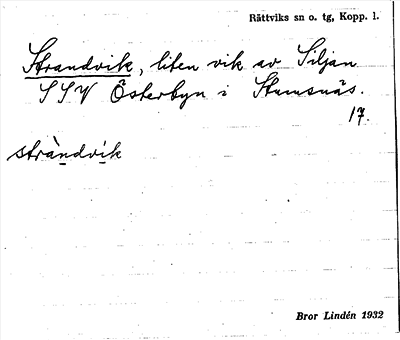 Rättviks sn o. tg, Kopp. l.
Strandvik, liten vik av Siljan
SSV Österbyn i Stumsnäs.
17.
stràndvik
Bror Lindén 1932